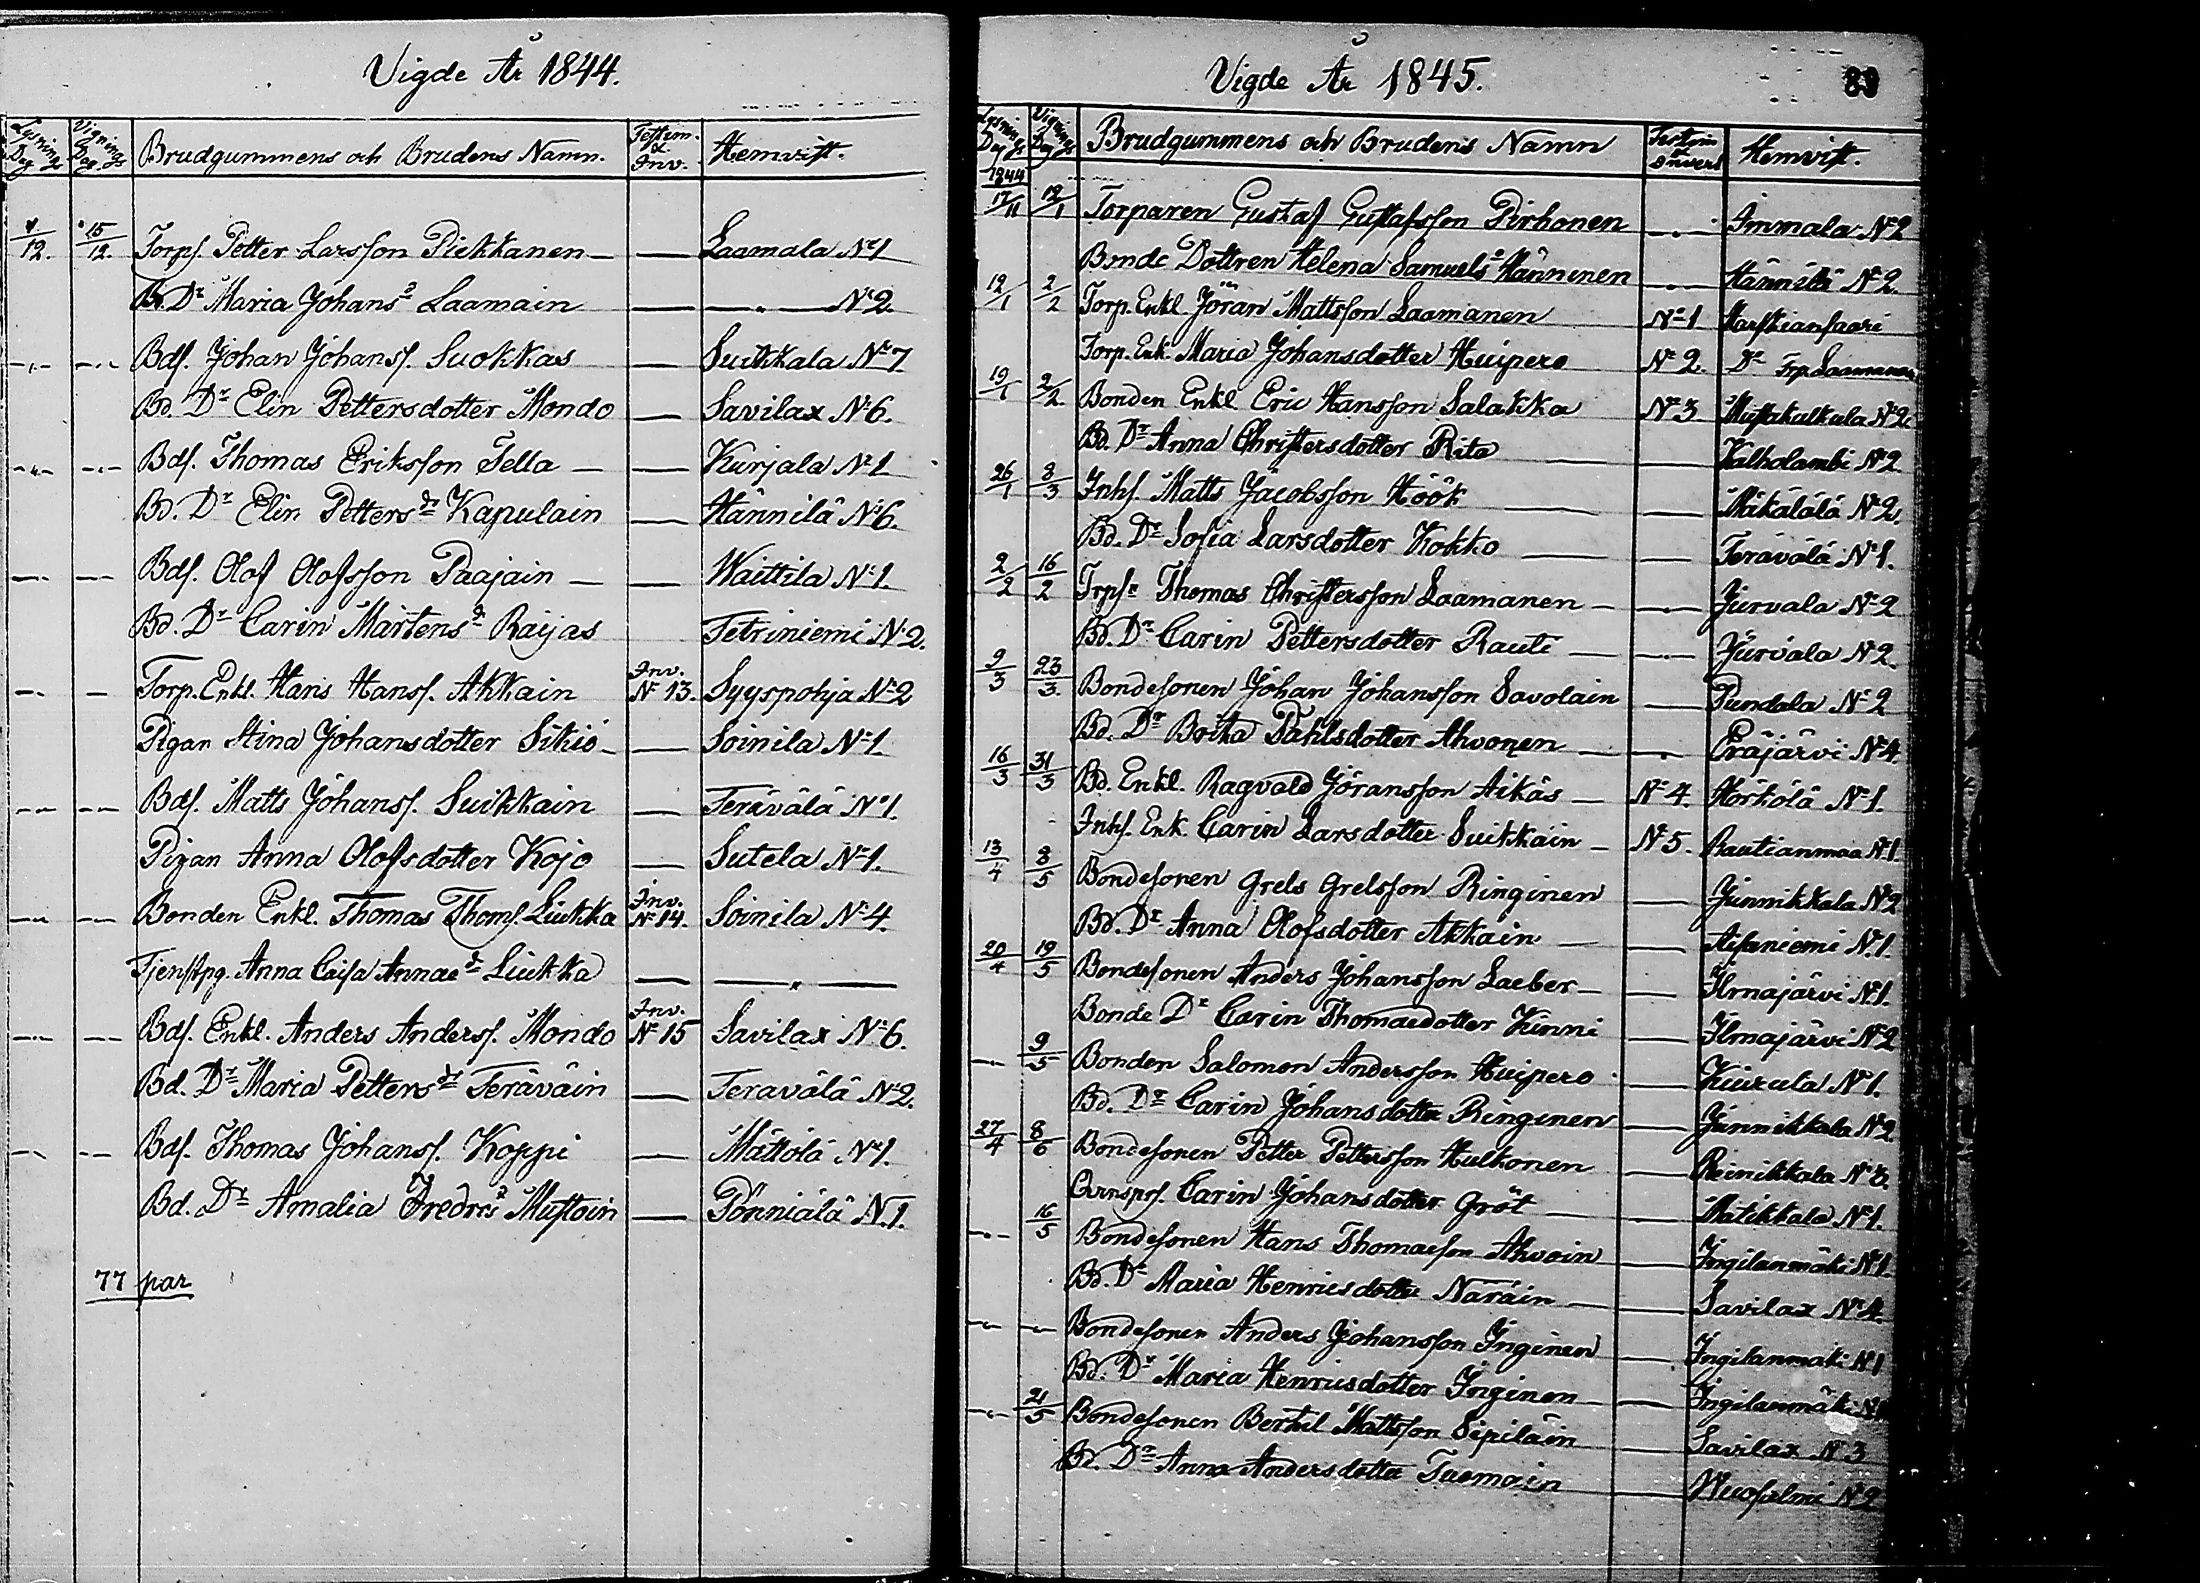 Vigde År 1844.
Lysnings Dag Vignings Dag Brudgummens och Brudens Namn. Testim. & Inv. Hemvist.
1/12. 15/12. Torps. Petter Larsson Piekkanen — — Laamala No 1
Bd. Dr Maria Johans Laamain — — " — No 2.
–"– –"– Bds. Johan Johanss. Suokkas — Suikkala No 7
Bd. Dr Elin Pettersdotter Mondo — Savilax No 6.
–"– –"– Bds. Thomas Eriksson Tella — — Kurjala No 1
Bd. Dr Elin Petters dr Kapulain — Hännilä No 6.
–"– –"– Bds. Olof Olofsson Paajain — — Waittila No 1.
Bd. Dr Carin Mårtens dr Raijas Tetriniemi No 2.
–"– – Torp. Enkl. Hans Hanss. Akkain Inv. No 13. Syyspohja No 2
Pigan Stina Johansdotter Sikiö – — Soinila No 1
–"– –"– Bds. Matts Johanss. Suikkain — Terävälä No 1.
Pigan Anna Olofsdotter Kojo — Sutela No 1.
–"– –"– Bonden Enkl. Thomas Thoms. Liukka Inv. No 14. Soinila No 4.
Tjenstpg. Anna Caisa Annae dr Liukka — — " —
–"– –"– Bds. Enkl. Anders Anderss. Mondo Inv. No 15 Savilax No 6.
Bd. Dr Maria Petters dr Teräväin — Teravälä No 2.
–"– –"– Bds. Thomas Johanss. Koppi — Mättölä No 1.
Bd. Dr Amalia Fredrs Mustoin — Pönniälä N. 1.
77 par
Vigde År 1845. 89
Lysnings Dag Vignings Dag Brudgummens och Brudens Namn Testim & Invent Hemvist.
1844
17/11 12/1 Torparen Gustaf Gustafsson Pirhonen –"– Immala No 2
Bonde Dottren Helena Samuels Hänninen –"– Hännilä No 2.
12/1 2/2 Torp. Enkl. Jöran Mattsson Laamanen No 1
Torp. Enk. Maria Johansdotter Huipero No 2. Do Trp. Laamanen
19/1 2/2 Bonden Enkl Eric Hansson Salakka No 3 Mustakalkula No 2.
Bd. Dr Anna Christersdotter Rita — — Kalholambi No 2
26/1 8/3 Inhs. Matts Jacobsson Höök — — Mikälälä No 2.
Bd. Dr Sofia Larsdotter Kokko — — Terävälä No 1.
2/2 16/2 Trps. Thomas Christersson Laamanen – –"– Jurvala No 2
Bd. Dr Carin Pettersdotter Rauti — –"– Jurvala No 2.
9/3 23/3. Bondesonen Johan Johansson Savolain — Pundala No 2
Bd. Dr Brita Pahlsdotter Ahvonen – –"– Eräjärvi No 4.
16/3 31/3 Bd. Enkl. Ragvald Jöransson Aikäs – No 4. Hörkölä No 1.
Inhs. Enk. Carin Larsdotter Suikkain – No 5. Rautianmaa No 1
13/4 8/5 Bondesonen Grels Grelsson Ringinen — Junnikkala No 2
Bd. Dr Anna Olofsdotter Akkain – — Aisaniemi No 1.
20/4 19/5 Bondesonen Anders Johansson Laeber – — Ilmajärvi No 1.
Bonde Dr Carin Thomaedotter Kinni — Ilmajärvi No 2
–"– 9/5 Bonden Salomon Andersson Huipero — Kuurula No 1.
Bd. Dr Carin Johansdotter Ringinen — Junnikkala No 2
27/4 8/6 Bondesonen Petter Pettersson Hulkonen — Reinikkala No 3.
Carin Johansdotter Gröt — — Matikkala No 1.
–"– 16/5 Bondesonen Hans Thomasson Ahvoin — Ingilanmäki No 1.
Bd. Dr Maria Henricsdotter Naräin — — Savilax No 4.
–"– –"– Bondesonen Anders Johansson Inginen — Ingilanmäki No 1
Bd. Dr Maria Henricsdotter Inginen — — Ingilanmäki No 1
–"– 21/5 Bondesonen Bertil Mattsson Sipiläin — Savilax No 3
Bd. Dr Anna Andersdotter Tuomain — Wuosalmi No 2